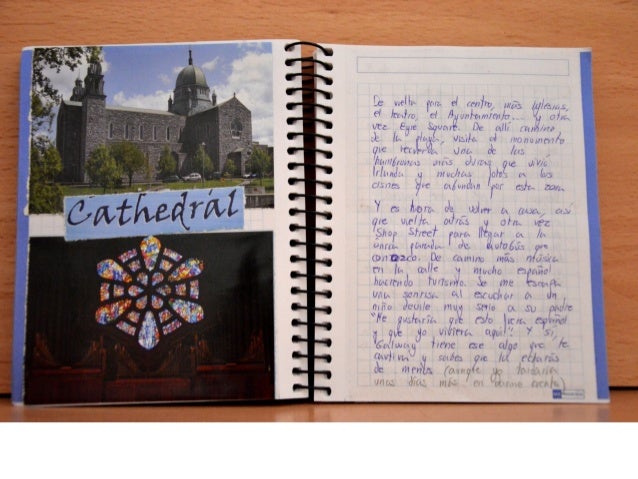 Cathedral
De vuelta para el centro, más iglesias,
el teatro, el Ayuntamiento... y otra
vez Eyre Square. De allí camino
de la playa, visita al monumento
que recuerda una de las
hambrunas más duras que vivió
Irlanda y muchas fotos a los
cisnes que abundan por esta zona
Y es hora de volver a casa, así
que vuelta atrás y otra vez
Shop Street para llegar a la
única parada de autobús que
conozco. De camino más música
en la calle y mucho español
haciendo turismo. Se me escapa
una sonrisa al escuchar a un
niño decirle muy serio a su padre
"Me gustaría que esto fuera español
y que yo viviera aquí". Y sí,
Galway tiene ese algo que te
cautiva y sabes que la echarás
de menos (aunque yo tardaría
unos días más en darme cuenta)